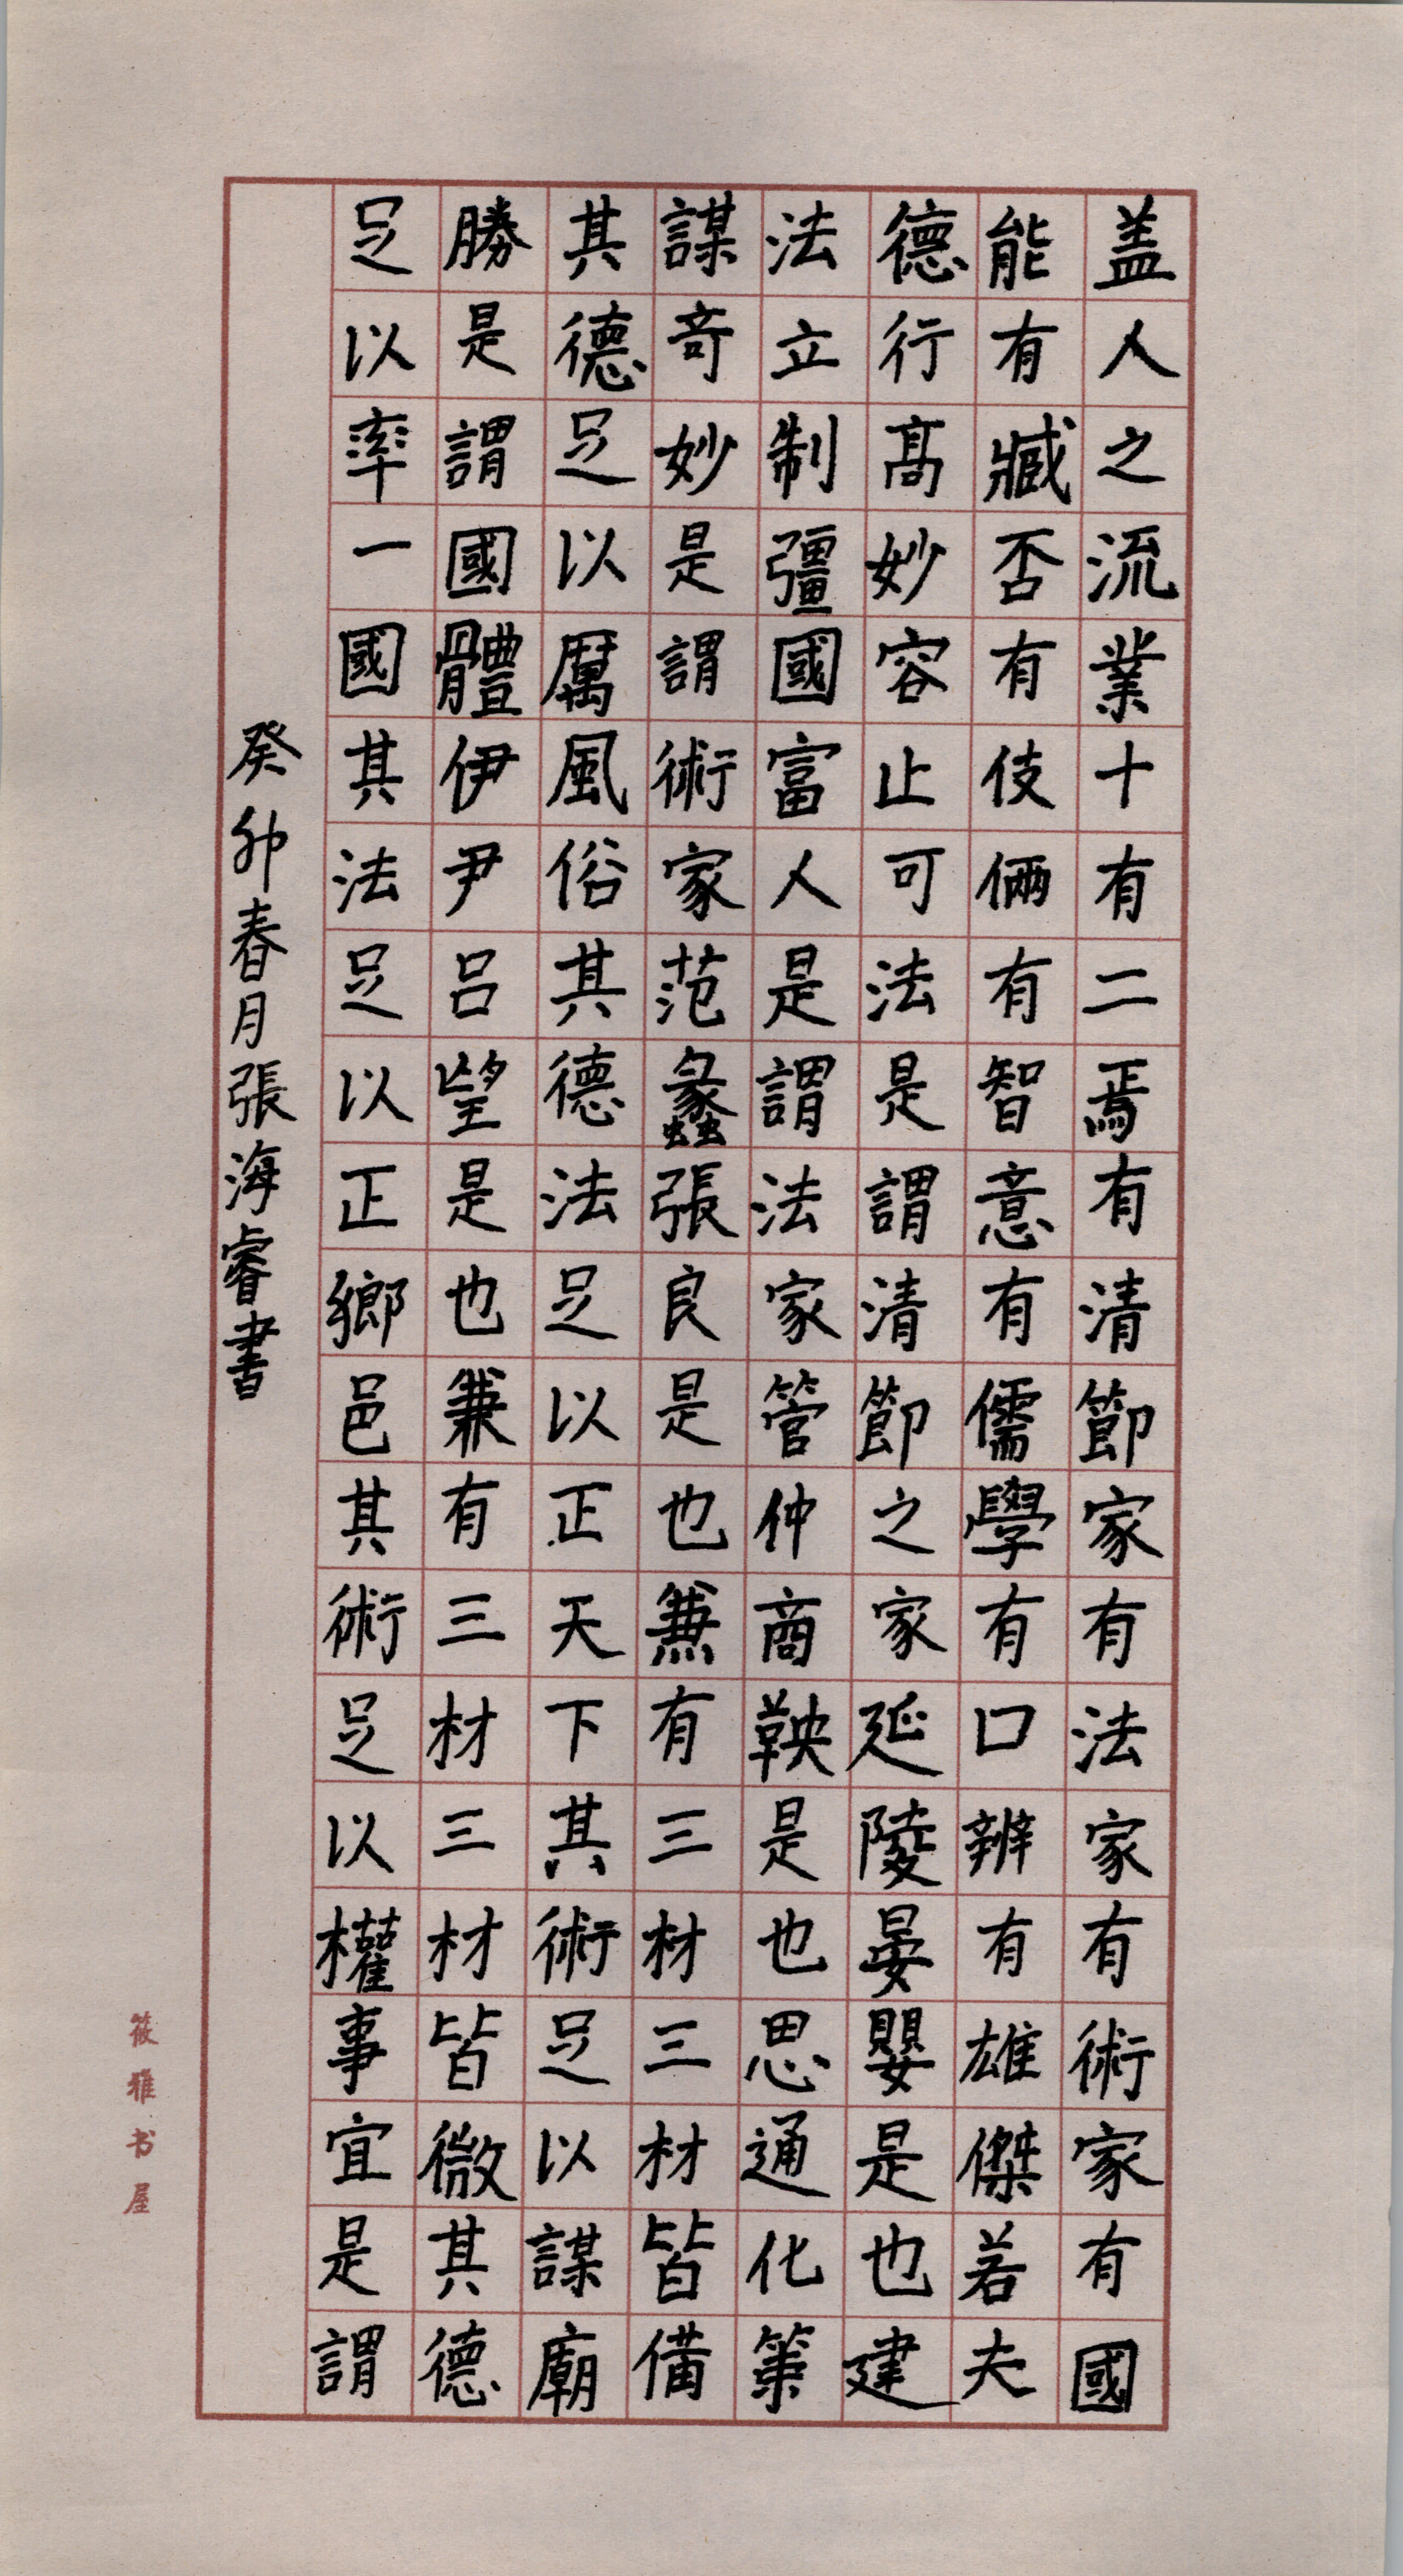 盖人之流業十有二焉有清節家有法家有術家有國
能有臧否有伎倆有智意有儒學有口辨有雄傑若夫
德行髙妙容止可法是謂清節之家延陵晏嬰是也建
法立制彊國富人是謂法家管仲商鞅是也思通化策
謀奇妙是謂術家范蠡張良是也兼有三材三材皆備
其德足以厲風俗其德法足以正天下其術足以謀廟
勝是謂國體伊尹吕望是也兼有三材三材皆微其德
足以率一國其法足以正鄉邑其術足以權事宜是謂
癸卯春月張海睿書
筱雅书屋